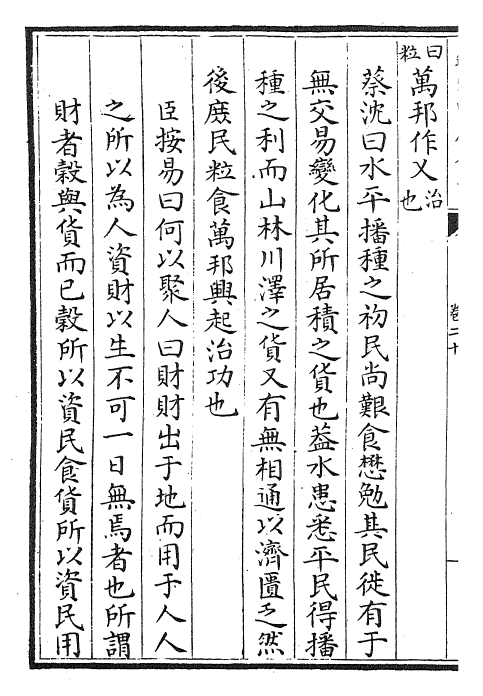 曰粒萬邦作乂治也
蔡沈曰水平播種之初民尚艱食懋勉其民徙有于
無交易變化其所居積之貨也葢水患悉平民得播
種之利而山林川澤之貨又有無相通以濟匱乏然
後庻民粒食萬邦興起治功也
臣按易曰何以聚人曰財財出于地而用于人人
之所以為人資財以生不可一日無焉者也所謂
財者榖與貨而已榖所以資民食貨所以資民用
卷二十